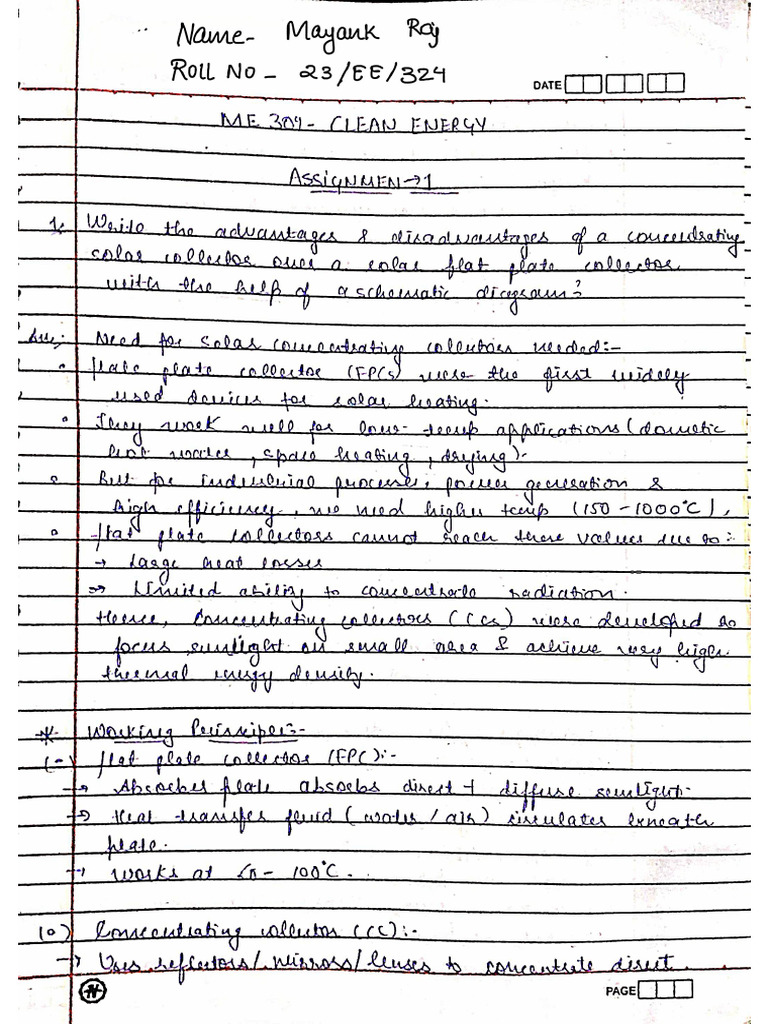 Name- Mayank Raj
ROLL NO - 23/EE/324
DATE
ME 309- CLEAN ENERGY
ASSIGNMEN→1
1. Write the advantages & disadvantages of a concentrating
solar collector over a solar flat plate collector
with the help of a schematic diagram?
Ans:- Need for solar concentrating collectors needed:-
Flate plate collector (FPCs) were the first widely
used devices for solar heating.
They work well for low-temp applications (dometic
hot water, space heating, drying).
But for industrial process, power generation &
high efficiency, we need higher temp (150-1000°C),
flat plate collectors cannot reach these values due to:-
→ Large heat losses
→ Limited ability to concentrate radiation.
Hence, concentrating collectors (CCs) were developed to
focus sunlight on small area & achieve very high
thermal energy density.
* Working Principer:-
(-) flat plate collector (FPC):-
→ Absorber plate absorbs direct + diffuse sunlight.
→ Heat transfer fluid (water/air) circulates beneath
plate.
→ works at - 100°C.
(o) Concentrating collector (CC):-
→ Uses reflectors/mirrors/lenses to concentrate direct
PAGE